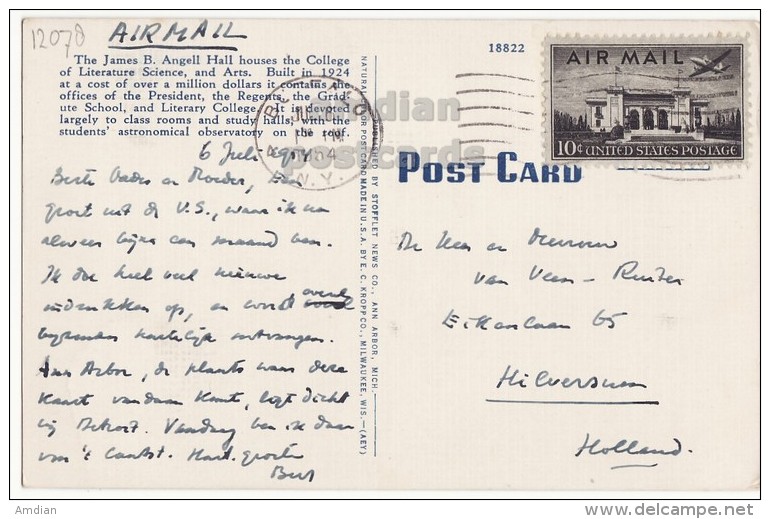 12078
AIRMAIL
The James B. Angell Hall houses the College
of Literature Science, and Arts. Built in 1924
at a cost of over a million dollars it contains the
offices of the President, the Regents, the Grad-
ute School, and Literary College. It is devoted
largely to class rooms and study halls, with the
students' astronomical observatory on the roof.
6 Juli 1954
Beste Vader en Moeder, Een
groet uit de U.S., waar ik nu
alweer bijna een maand ben.
Ik doe heel veel nieuwe
indrukken op, en word overal
bijzonder hartelijk ontvangen.
Ann Arbor, de plaats waar deze
kaart vandaan komt, ligt dicht
bij Detroit. Vandaag ben ik daar
van 't
Hart. groeten
Bert
NATURAL COLOR POST CARD MADE IN U.S.A. BY E. C. KROPP CO., MILWAUKEE, WIS.—(AEY)
PUBLISHED BY STOFFLET NEWS CO., ANN ARBOR, MICH.
18822
AIR MAIL
10¢ UNITED STATES POSTAGE
BUFFALO
JUL
1954
N.Y.
POST CARD
De Heer en Mevrouw
van Veen - Ruiter
Eikenlaan 65
Hilversum
Holland.
amdian
postcards
Amdian
www.delcampe.net